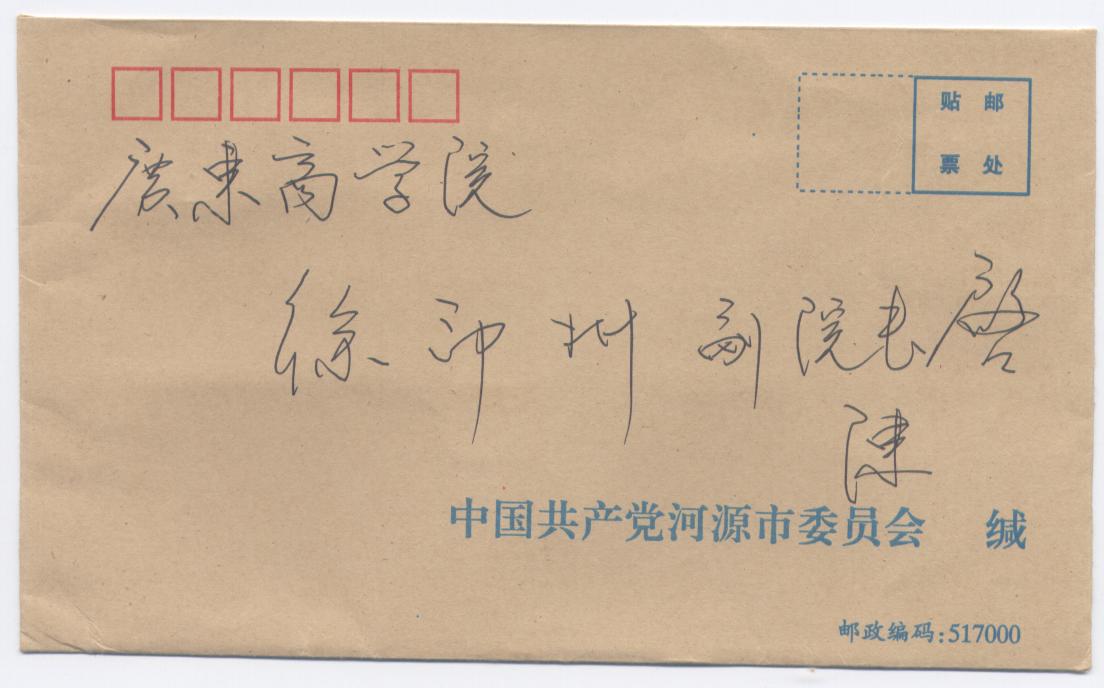 贴 邮
票 处
廣東商学院
徐印洲副院长启
陈
中国共产党河源市委员会 缄
邮政编码:517000